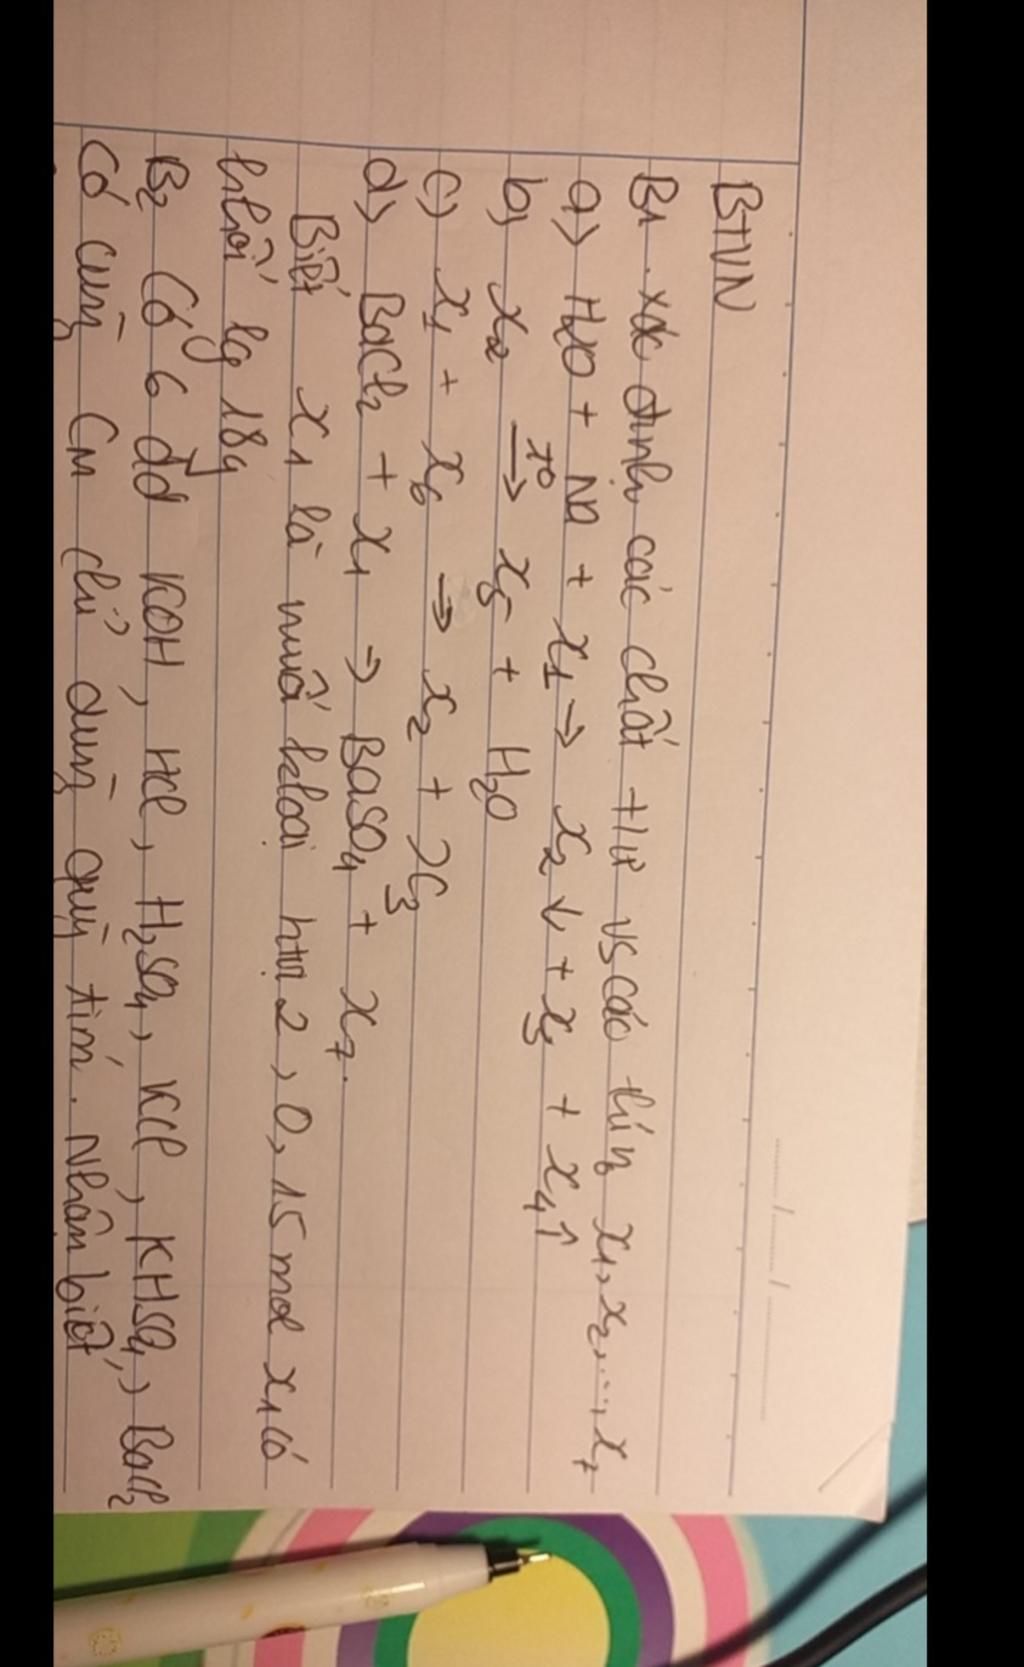 BTVN
B1. xác định các chất t/ư vs các kí h x1, x2, ..., x7
a) H2O + Na + x1 → x2 ↓ + x3 + x4 ↑
b) x2 t° → x5 + H2O
c) x1 + x6 → x2 + x3
d) BaCl2 + x1 → BaSO4 + x7.
Biết x1 là muối kloại htrị 2, 0,15 mol x1 có
khối lg 18g
B2 Có 6 dd KOH, HCl, H2SO4, KCl, KHSO4, BaCl2
Có cùng CM chỉ dùng quỳ tím. Nhận biết